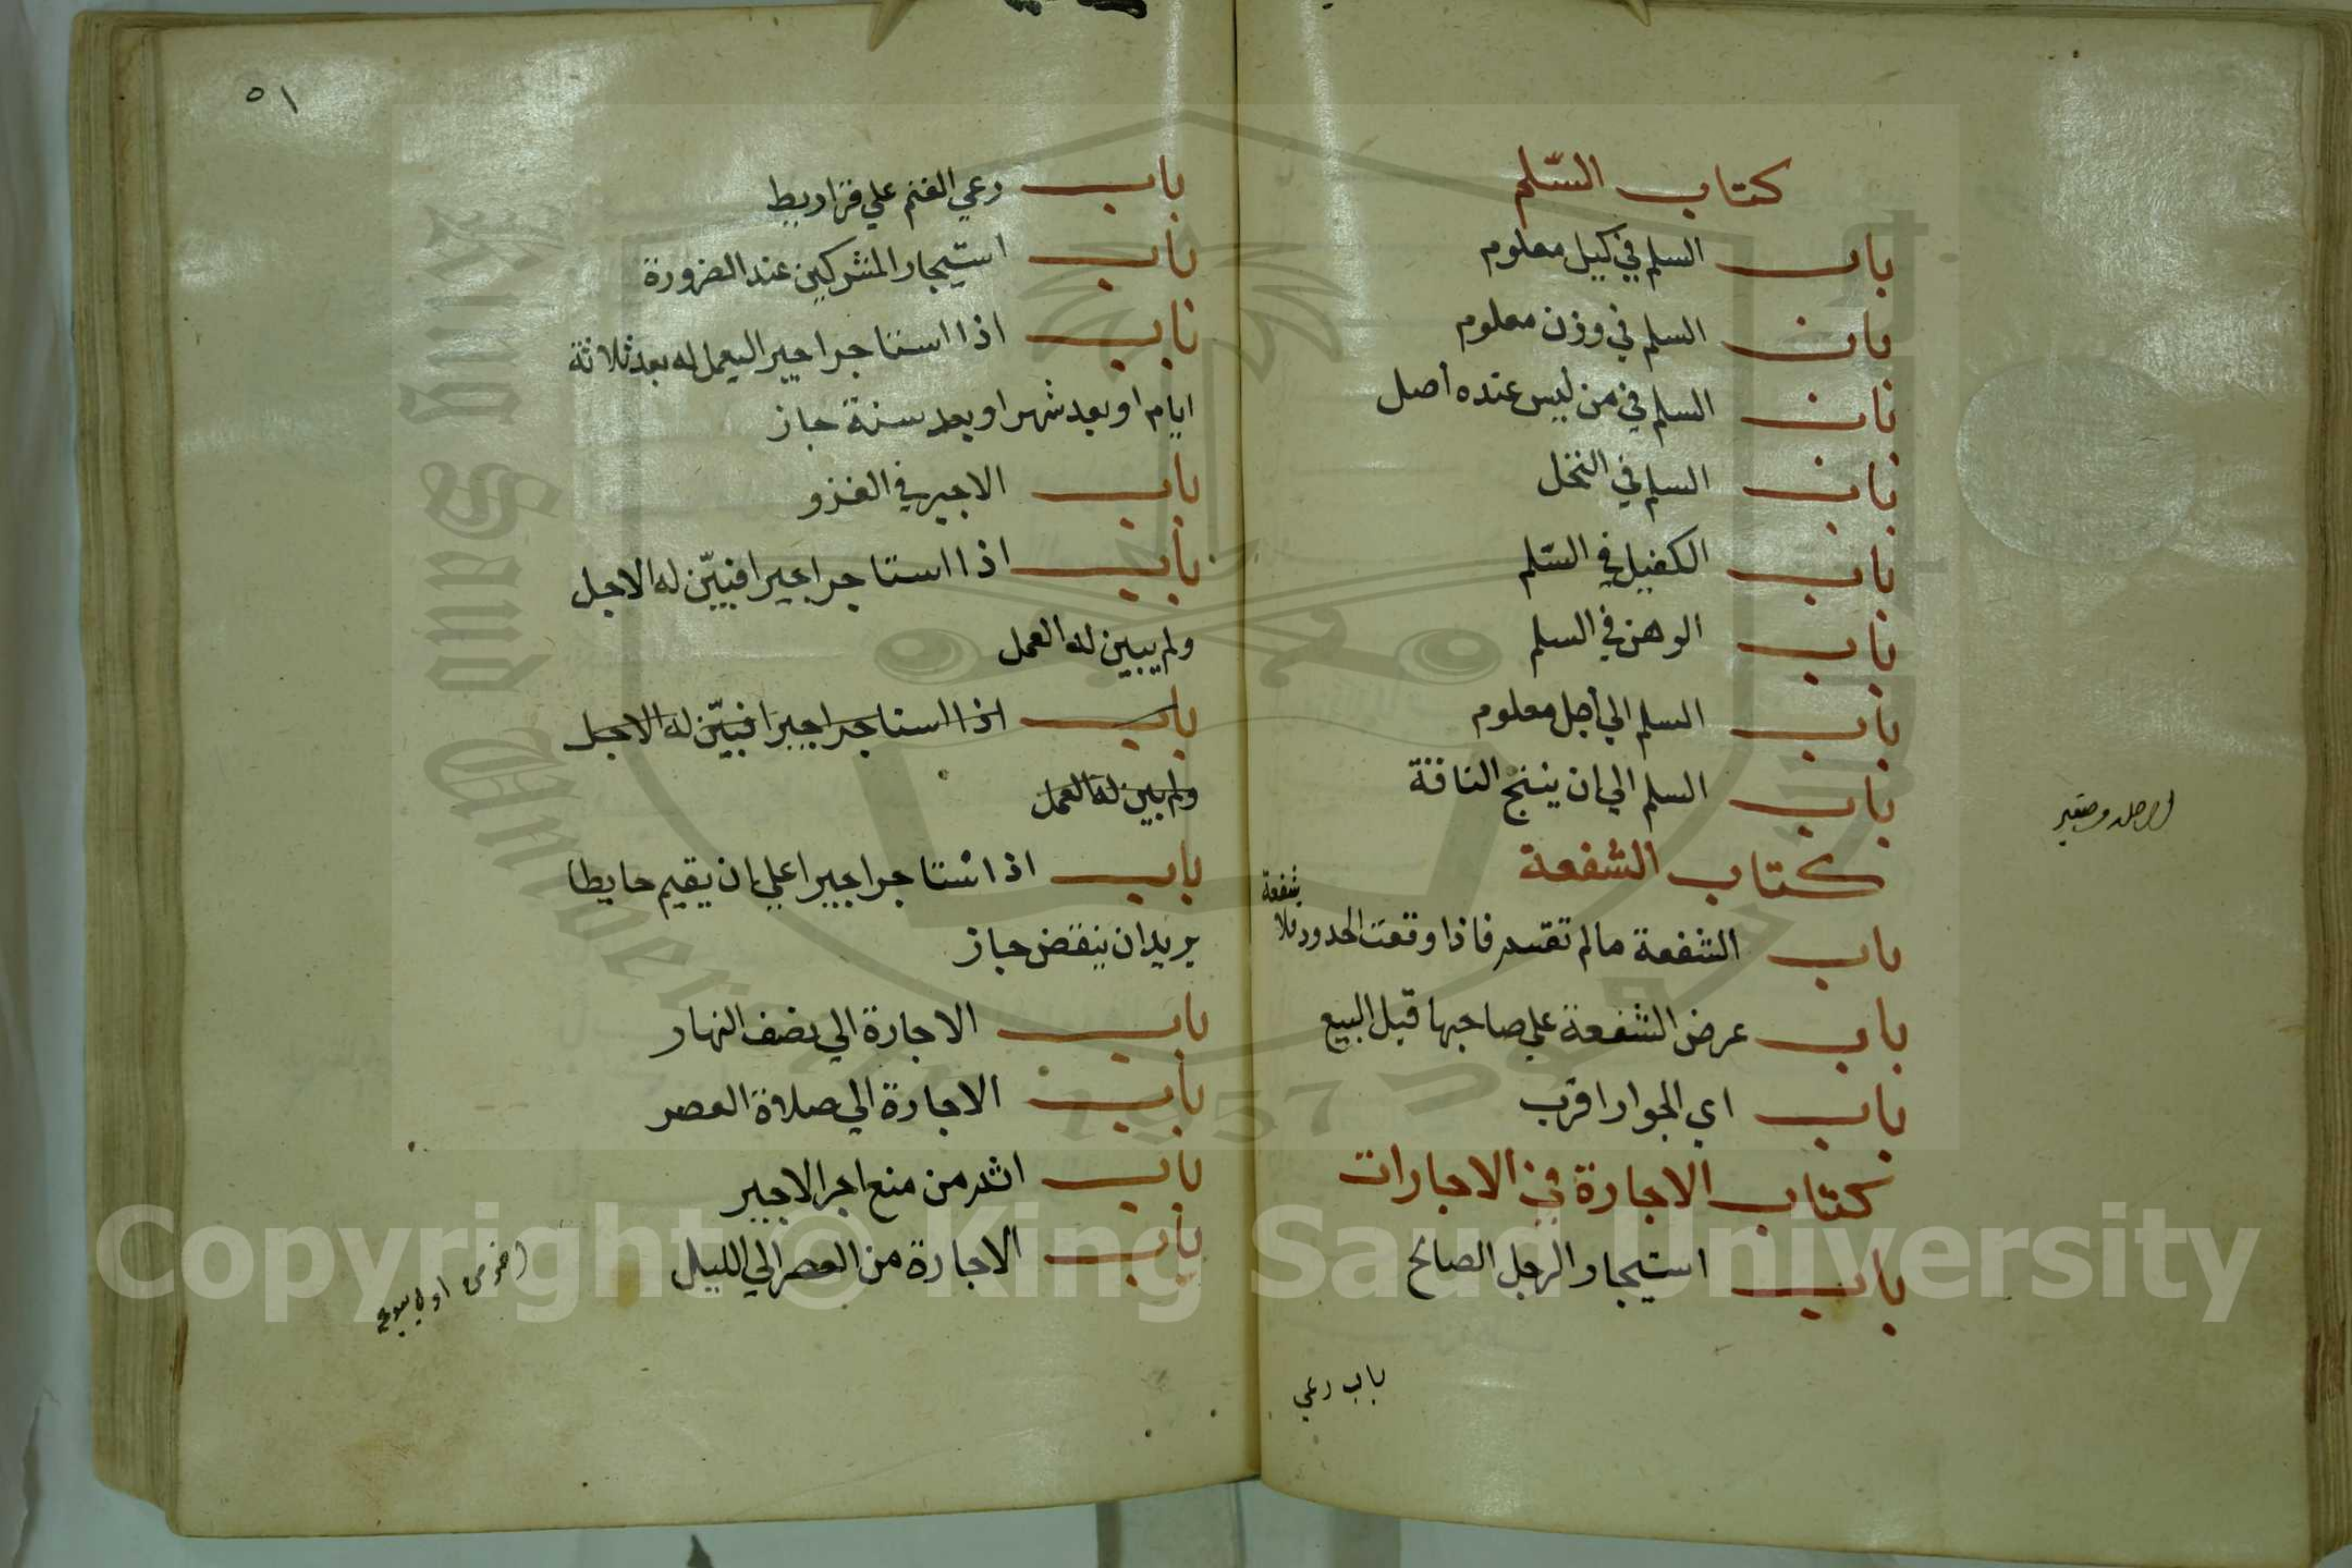 كتاب السّلم
باب السلم في كيل معلوم
باب السلم في وزن معلوم
باب السلم في من ليس عنده أصل
باب السلم في النخل
باب الكفيل في السّلم
باب الرهن في السلم
باب السلم الي أجل معلوم
باب السلم الي ان ينتج الناقة
كتاب الشفعة
باب الشفعة مالم تقسم فاذا وقعت الحدود فلا
شفعة
باب عرض الشفعة علي صاحبها قبل البيع
باب اي الجوار اقرب
كتاب الاجارة في الاجارات
باب استيجار الرجل الصالح
باب رعي
٥١
باب رعي الغنم علي قراريط
باب استيجار المشركين عند الضرورة
باب اذا استاجر اجيرا ليعمل له بعد ثلاثة
ايام او بعد شهر او بعد سنة جاز
باب الاجير في الغزو
باب اذا استاجر اجيرا فبيّن له الاجل
ولم يبين له العمل
باب اذا استاجر اجيرا فبيّن له الاجل
ولم يبين له العمل
باب اذا استاجر اجيرا علي ان يقيم حايطا
يريد ان ينقض جاز
باب الاجارة الي نصف النهار
باب الاجارة الي صلاة العصر
باب اثم من منع اجر الاجير
باب الاجارة من العصر الي الليل
King Saud University
1957
Copyright © King Saud University